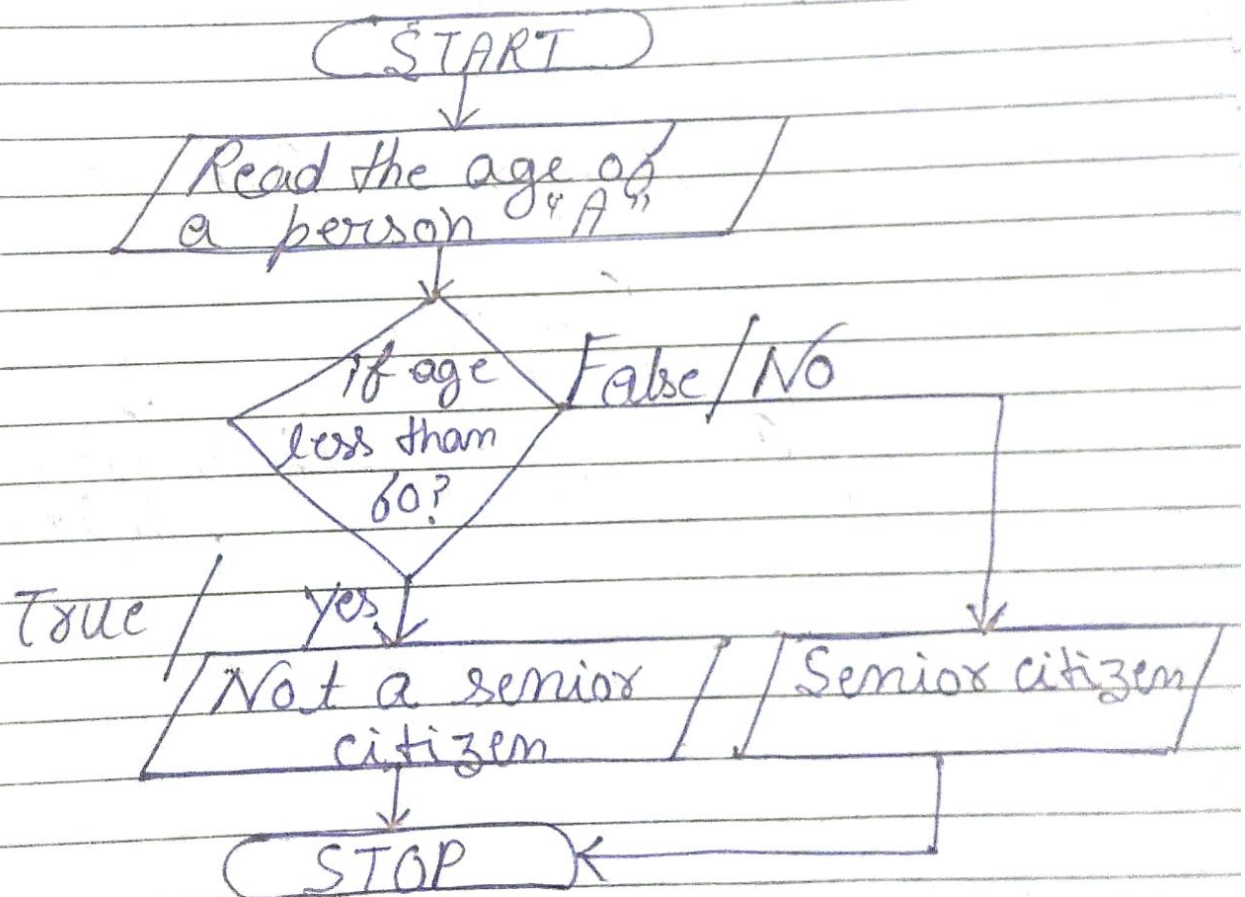 START
Read the age of
a person "A"
if age
less than
60?
False/No
True / Yes
Not a senior
citizen
Senior citizen
STOP